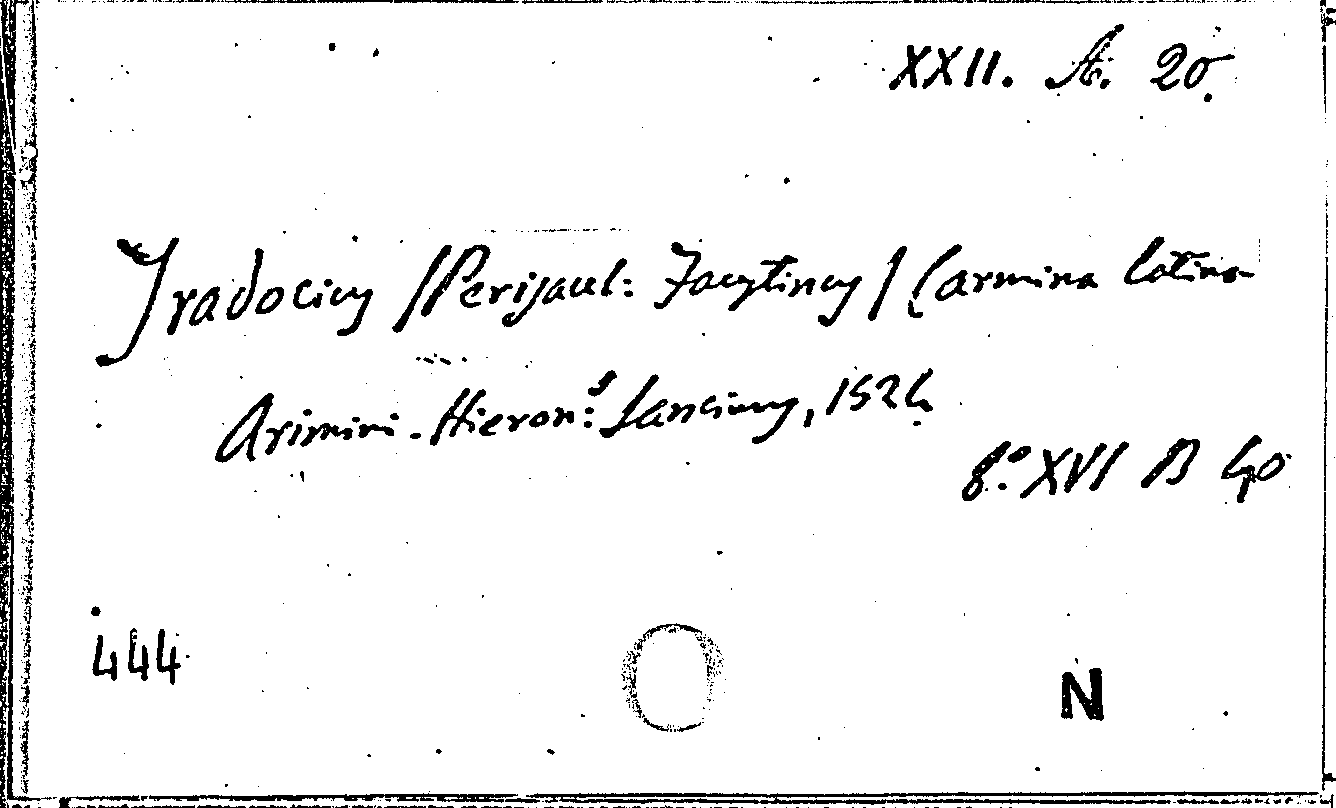 XXII. A. 20.
Jradocicy /Perisaul: Jacytincy/ Carmina latina
Arimini. Hieron: Sancimy, 1524.
8.° XVI B 40
444
N